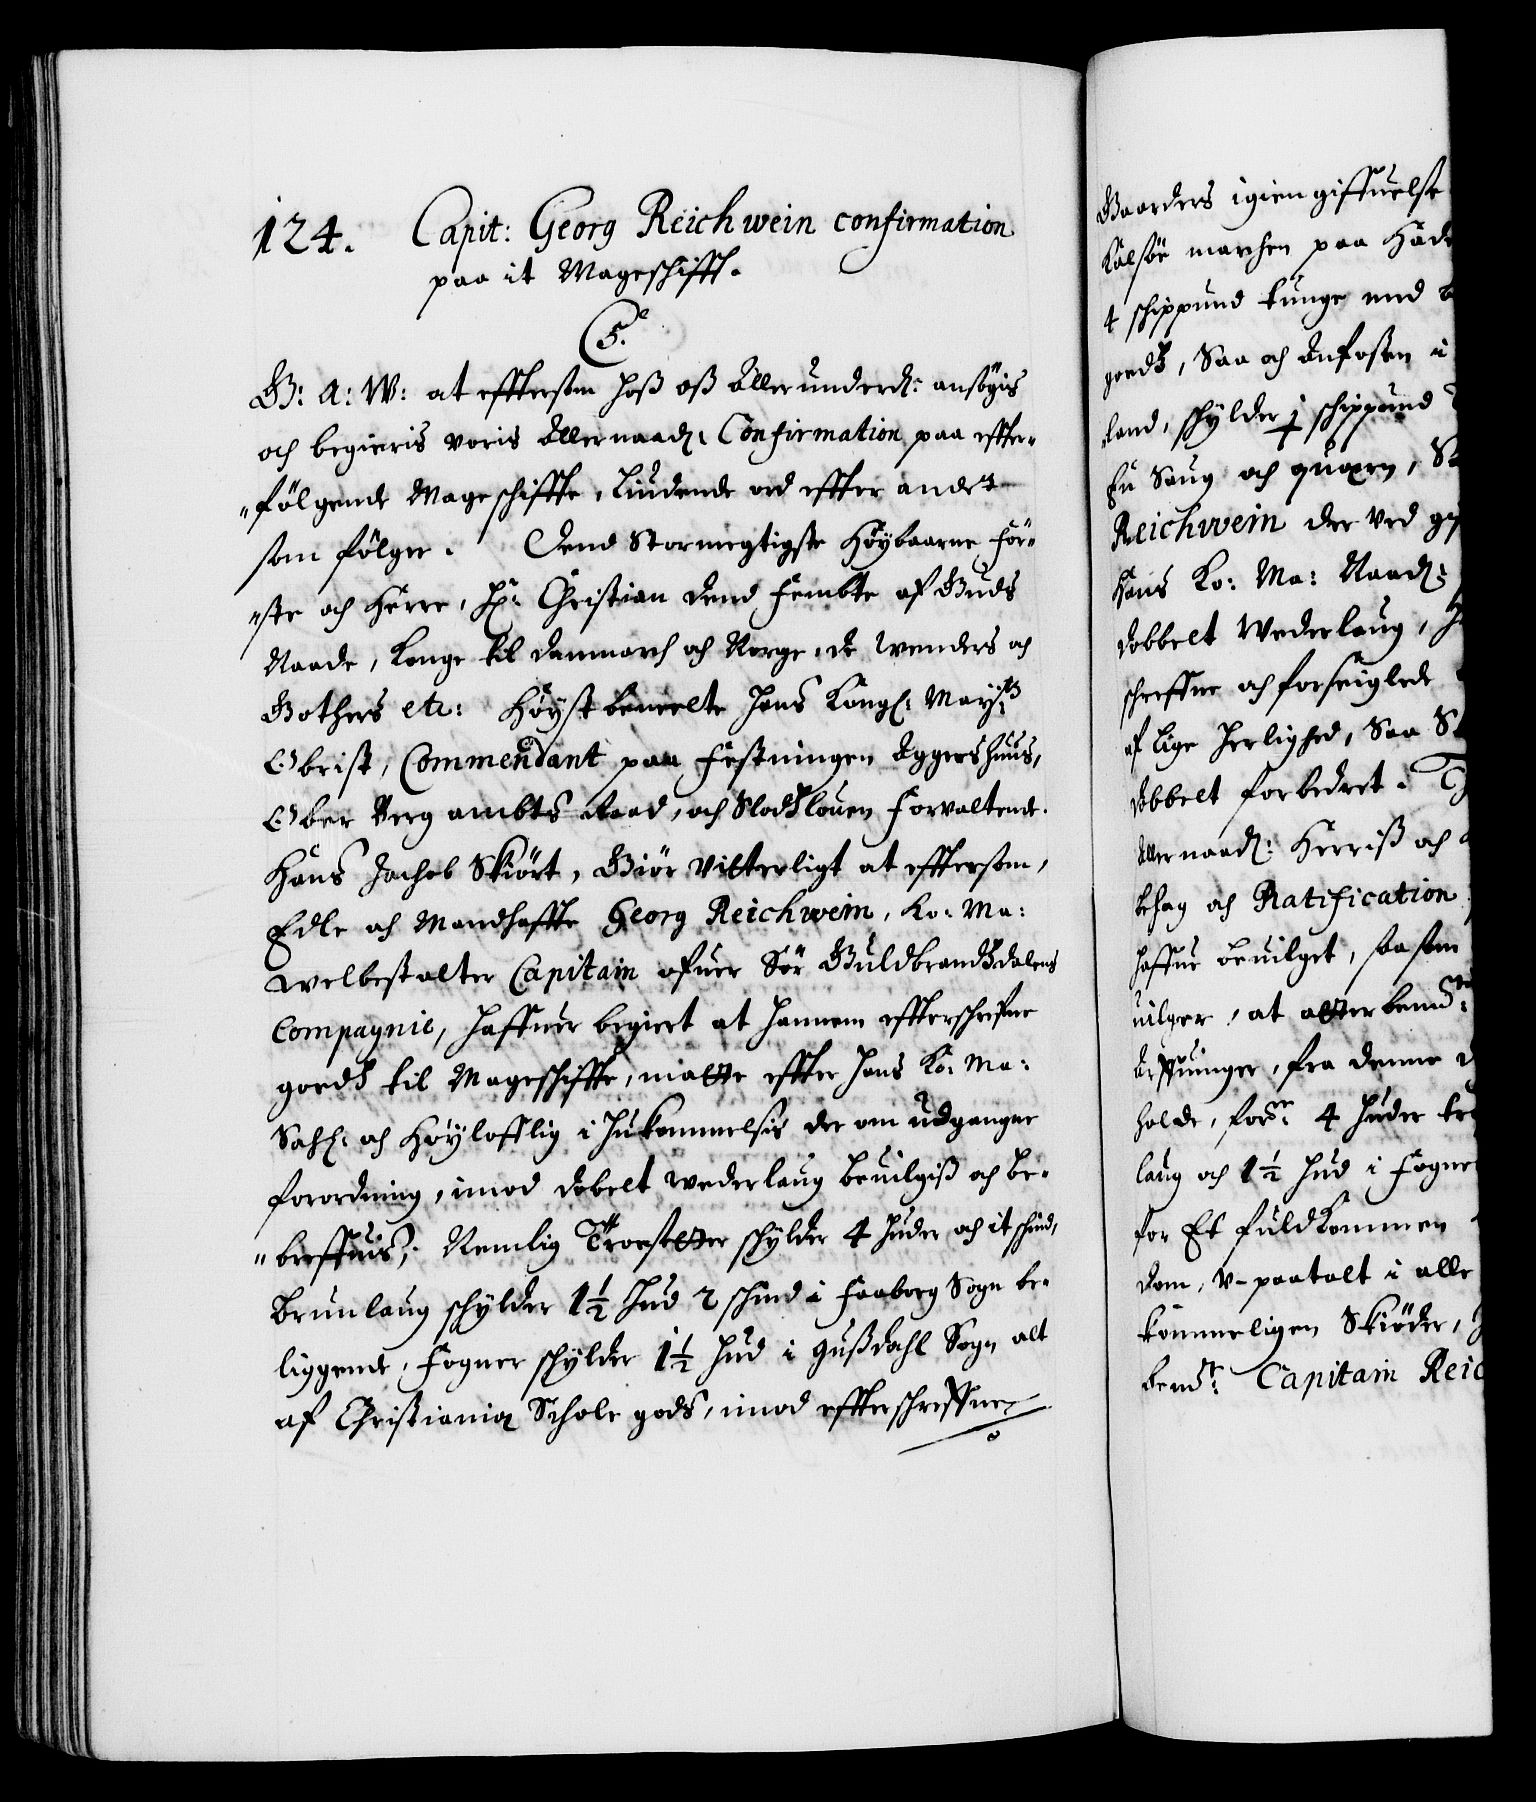 124. Capit: Georg Reichwein confirmation
paa it Mageschifft.
C 5.e
G: A: W: at effttersom hoß oß Allerunderd: ansögis
och begieris voris Allernaad: Confirmation paa effter-
"følgende Mageschiffte, Liudende ord effter andet
som følger. Dend Stormegtigste Høybaarne För-
"ste och Herre, Hr: Christian dend Fembte af Guds
Naade, Konge til Danmarch och Norge, de Wenders och
Gothers etc: Høystbemelte Hans Kongl: Mayts
Obrist, Commendant paa Festningen Aggershuus,
Ober Berg ambts Raad, och Slodtzlouen Forvaltende.
Hans Jachob Skiört, Giör Vitterligt at efftersom,
Edle och Mandhaffte Georg Reichwein, Ko: Ma:
welbestalter Capitain ofuer Sör Guldbrandtzdalens
Compagnie, haffuer begiert at hannem effterschrefne
goedtz til Mageschiffte, motte effter Hans Ko: Ma:
Sahl: och Høylofflig i Hukommelsis der om udgangne
forordning, imod dobelt wederlaug beuilgiß och be-
"breffuis, Nemlig Troesetter schylder 4 huder och it schind,
Brunlaug schylder 1½ Hud 2 schind i Faaberg Sogn be-
liggende, Fogner schylder 1½ Hud i Gußdahl Sogn alt
af Christianiæ Schole gods, imod effterschreffne
Gaarders igiengiffuelse
Kalsöe marchen paa Hade
4 schippund tunge med
goedtz, Saa och Anfosten i
land, schylder 1 schippund
En Saug och quern, Sa
Reichwein der ved
Hans Ko: Ma: Naad:
dobbelt Wederlaug,
schreffne och forseiglede
af lige herlighed, Saa
dobbelt forbedret.
Allernaad: Herriß och
behag och Ratification
haffue beuilget, saasom
uilger, at
fra denne
holde, for 4 huder
laug och 1½ Hud i Fogne
for Et fuldkommen
dom, V-paatalt i alle
kommeligen Skiöder,
bemdte: Capitain Reic